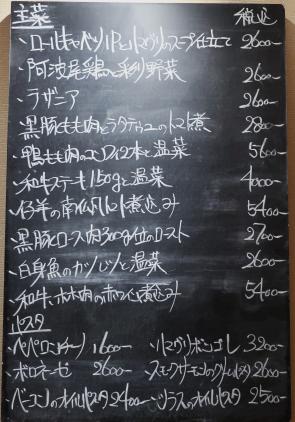 主菜 税込
・ロールキャベツ1Pとハマグリのスープ仕立て 2600-
・阿波尾鶏と彩り野菜 2600-
・ラザニア 2600-
・黒豚もも肉とラタテュユのトマト煮 2800-
・鴨もも肉のコンフィ2本と温菜 5600-
・和牛ステーキ150gと温菜 4000-
・仔羊の南仏風トマト煮込み 5400-
・黒豚ロース肉300g位のロースト 2700-
・白身魚のカツレツと温菜 2600-
・和牛ホホ肉の赤ワイン煮込み 5400-
パスタ
・ペペロンチーノ 1600- ・ハマグリボンゴレ 3200-
・ボロネーゼ 2600- ・スモークサーモンのクリームパスタ 2600-
・ベーコンのオイルパスタ 2400- ・シラスのオイルパスタ 2500-